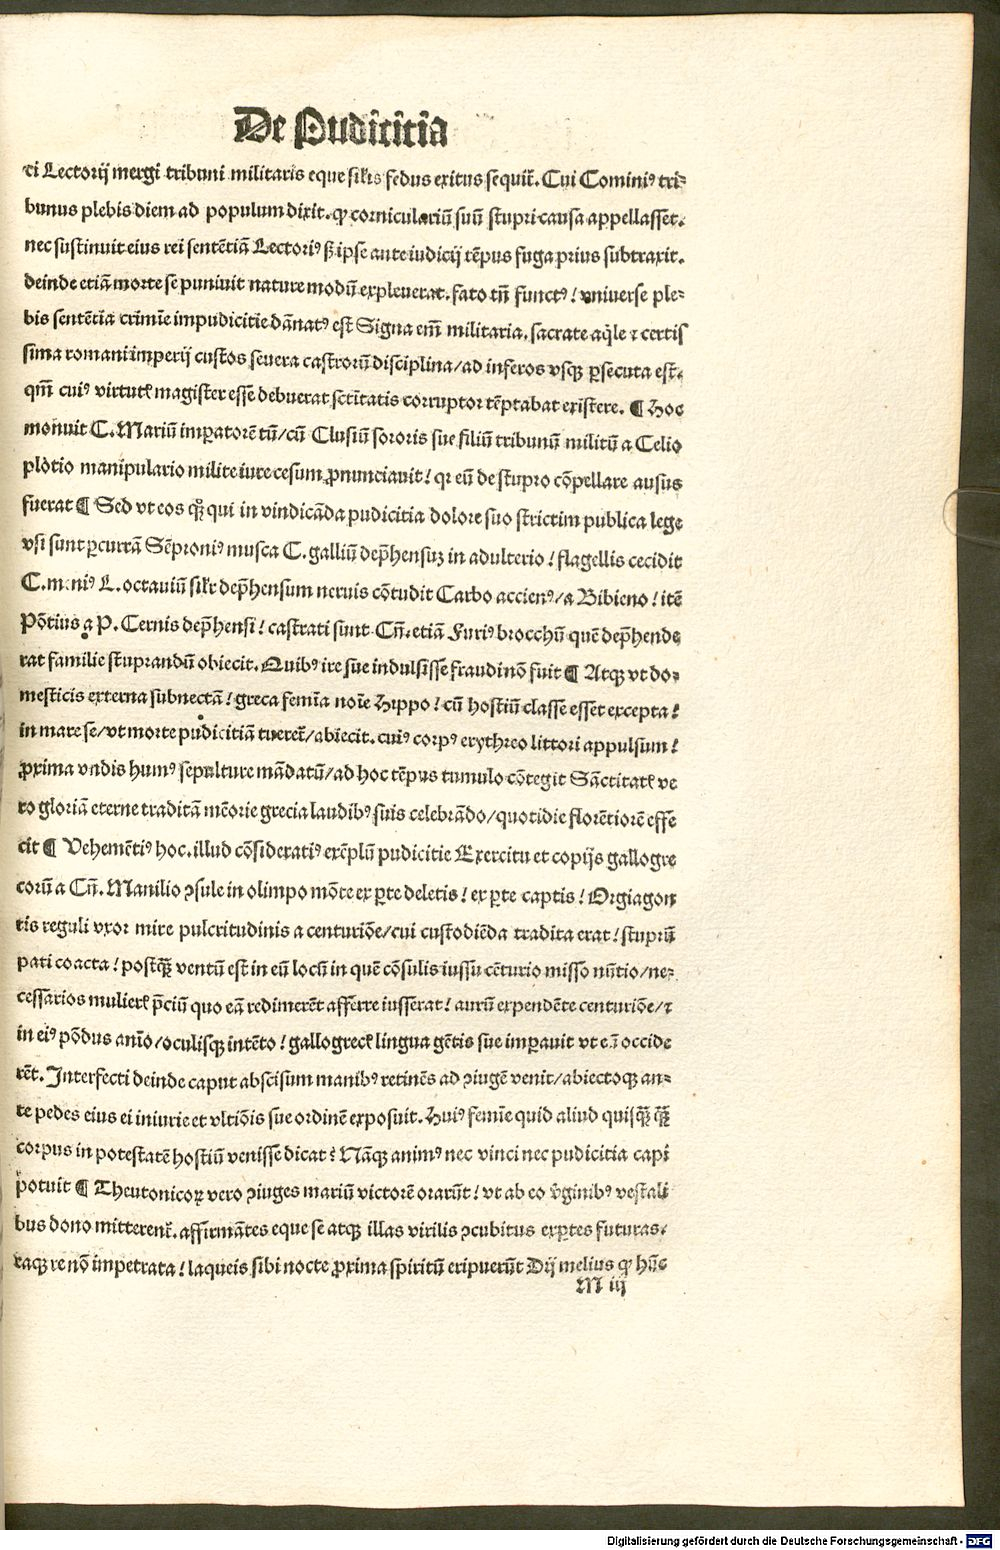 De Pudicitia
ti Lectorij mergi tribuni militaris eque sil'is fedus exitus sequit̃. Cui Cominiꝰ tri⸗
bunus plebis diem ad populum dixit. ꝙ corniculariũ suũ stupri causa appellasset.
nec sustinuit eius rei sentẽtiã Lectoriꝰ sꝫ ipse ante iudicij tẽpus fuga prius subtraxit.
deinde etiã morte se puniuit nature modũ expleuerat. fato tñ functꝰ! vniuerse ple⸗
bis sentẽtia crimĩe impudicitie dãnatꝰ est Signa em̃ militaria. sacrate aq̃le ⁊ certis
sima romani imperij custos seuera castrorũ disciplina/ad inferos vsqꝫ ꝑsecuta est.
qm̃ cuiꝰ virtutꝭ magister esse debuerat sctitatis corruptor tẽptabat existere. ¶ Hoc
monuit C. Mariũ imꝑatorẽ tũ/cũ Clusiũ sororis sue filiũ tribunũ militũ a Celio
plotio manipulario milite iure cesum ꝓnunciauit! qr eũ de stupro cõpellare ausus
fuerat ¶ Sed vt eos qͦꝫ qui in vindicãda pudicitia dolore suo strictim publica lege
vsi sunt ꝑcurrã Sẽproniꝰ musca C. galliũ dep̃hensuꝫ in adulterio! flagellis cecidit
C. meniꝰ L. octauiũ sil'r dep̃hensum neruis cõtudit Carbo accienꝰ/a Bibieno! itẽ
Põtius a P. Cernis dep̃hensi! castrati sunt Cñ. etiã Furiꝰ brocchũ quẽ dep̃hende
rat familie stuprandũ obiecit. Quibꝰ ire sue indulsisse fraudi nõ fuit ¶ Atqꝫ vt do⸗
mesticis externa subnectã! greca femĩa noĩe Hippo! cũ hostiũ classe esset excepta!
in mare se/vt morte pudicitiã tueret̃/abiecit. cuiꝰ corpꝰ erythreo littori appulsum!
ꝓxima vndis humꝰ sepulture mãdatũ/ad hoc tẽpus tumulo cõtegit Sãctitatꝭ ve
ro gloriã eterne traditã mẽorie grecia laudibꝰ suis celebrãdo/quotidie florẽtiorẽ effe
cit ¶ Vehemẽtiꝰ hoc. illud cõsideratiꝰ exẽplũ pudicitie Exercitu et copijs gallogre
corũ a Cñ. Manilio ꝯsule in olimpo mõte ex ꝑte deletis! ex ꝑte captis! Orgiagon
tis reguli vxor mire pulcritudinis a centuriõe/cui custodiẽda tradita erat! stuprũ
pati coacta! postqꝫ̃ ventũ est in eũ locũ in quẽ cõsulis iussu cẽturio misso nũtio/ne⸗
cessarios mulierꝭ p̃ciũ quo eã redimerẽt afferre iusserat! aurũ expendẽte centuriõe/⁊
in eiꝰ põdus anĩo/oculisqꝫ intẽto! gallogrecꝭ lingua gẽtis sue imꝑauit vt eũ occide
rẽt. Interfecti deinde caput abscisum manibꝰ retinẽs ad ꝯiugẽ venit/abiectoqꝫ an⸗
te pedes eius ei iniurie et vltiõis sue ordinẽ exposuit. Huiꝰ femĩe quid aliud quisqꝫ̃ qꝫ̃
corpus in potestatẽ hostiũ venisse dicat? Nãqꝫ animꝰ nec vinci nec pudicitia capi
potuit ¶ Theutonicoꝝ vero ꝯiuges mariũ victorẽ orarũt! vt ab eo v̓ginibꝰ vestali
bus dono mitterent̃. affirmãtes eque se atqꝫ illas virilis ꝯcubitus exꝑtes futuras.
eaqꝫ re nõ impetrata! laqueis sibi nocte ꝓxima spiritũ eripuerũt Dij melius ꝙ hũc
M iij
Digitalisierung gefördert durch die Deutsche Forschungsgemeinschaft - DFG